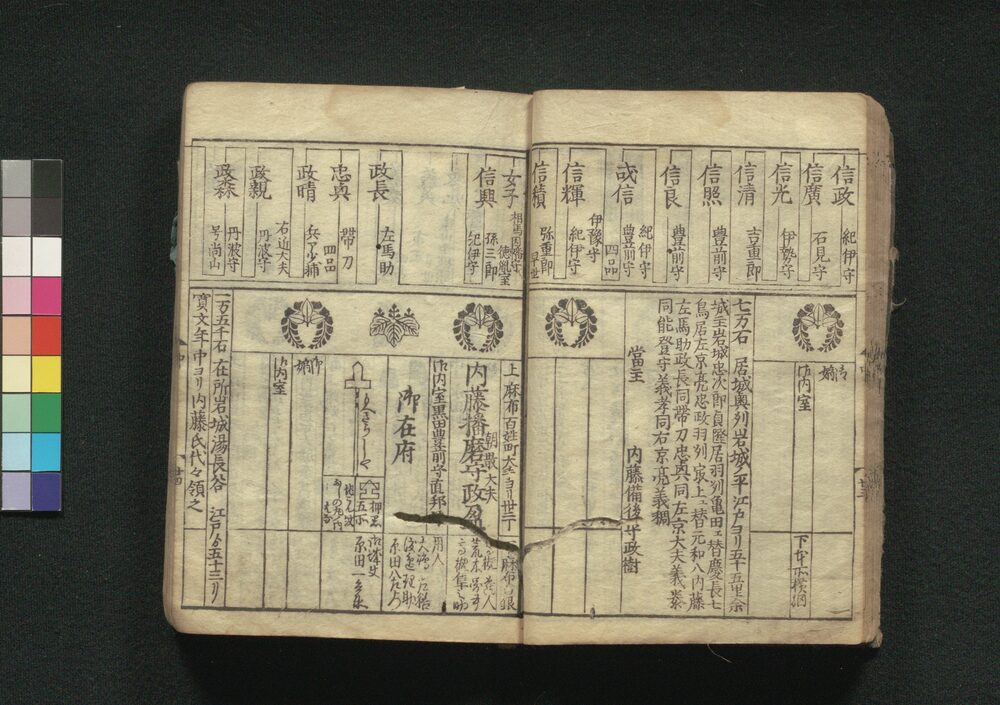 信政
紀伊守
信廣
石見守
信光
伊勢守
信清
吉重郎
信照
豊前守
信良
豊前守
紀伊守
信
豊前守
四品
伊豫守
信輝
紀伊守
信績
弥重郎
早世
女子
相馬因幡守
徳胤室
信興
孫三郎
紀伊守
政長
左馬助
忠興
帯刀
四品
政晴
兵ア少輔
右近大夫
政親
丹波守
政森
丹波守
号尚山
御嫡
御内室
下ヤシキ
七万石 居城奥列岩城ノ平 江戸ヨリ五十五里余
城主岩城忠次郎貞隆居羽列亀田エ替慶長七
鳥居左京亮忠政羽列最上エ替元和八内藤
左馬助政長同帯刀忠興同左京大夫義泰
同能登守義孝同右京亮義稠
當主
内藤備後守政樹
上 麻布百姓町大手ヨリ廿二丁
朝散大夫
内藤播磨守政
御内室黒田豊前守直邦
御在府
用人
御嫡
御内室
一万五千石 在所岩城湯長谷 江戸ゟ五十三リ
寛文年中ヨリ内藤氏代々領之